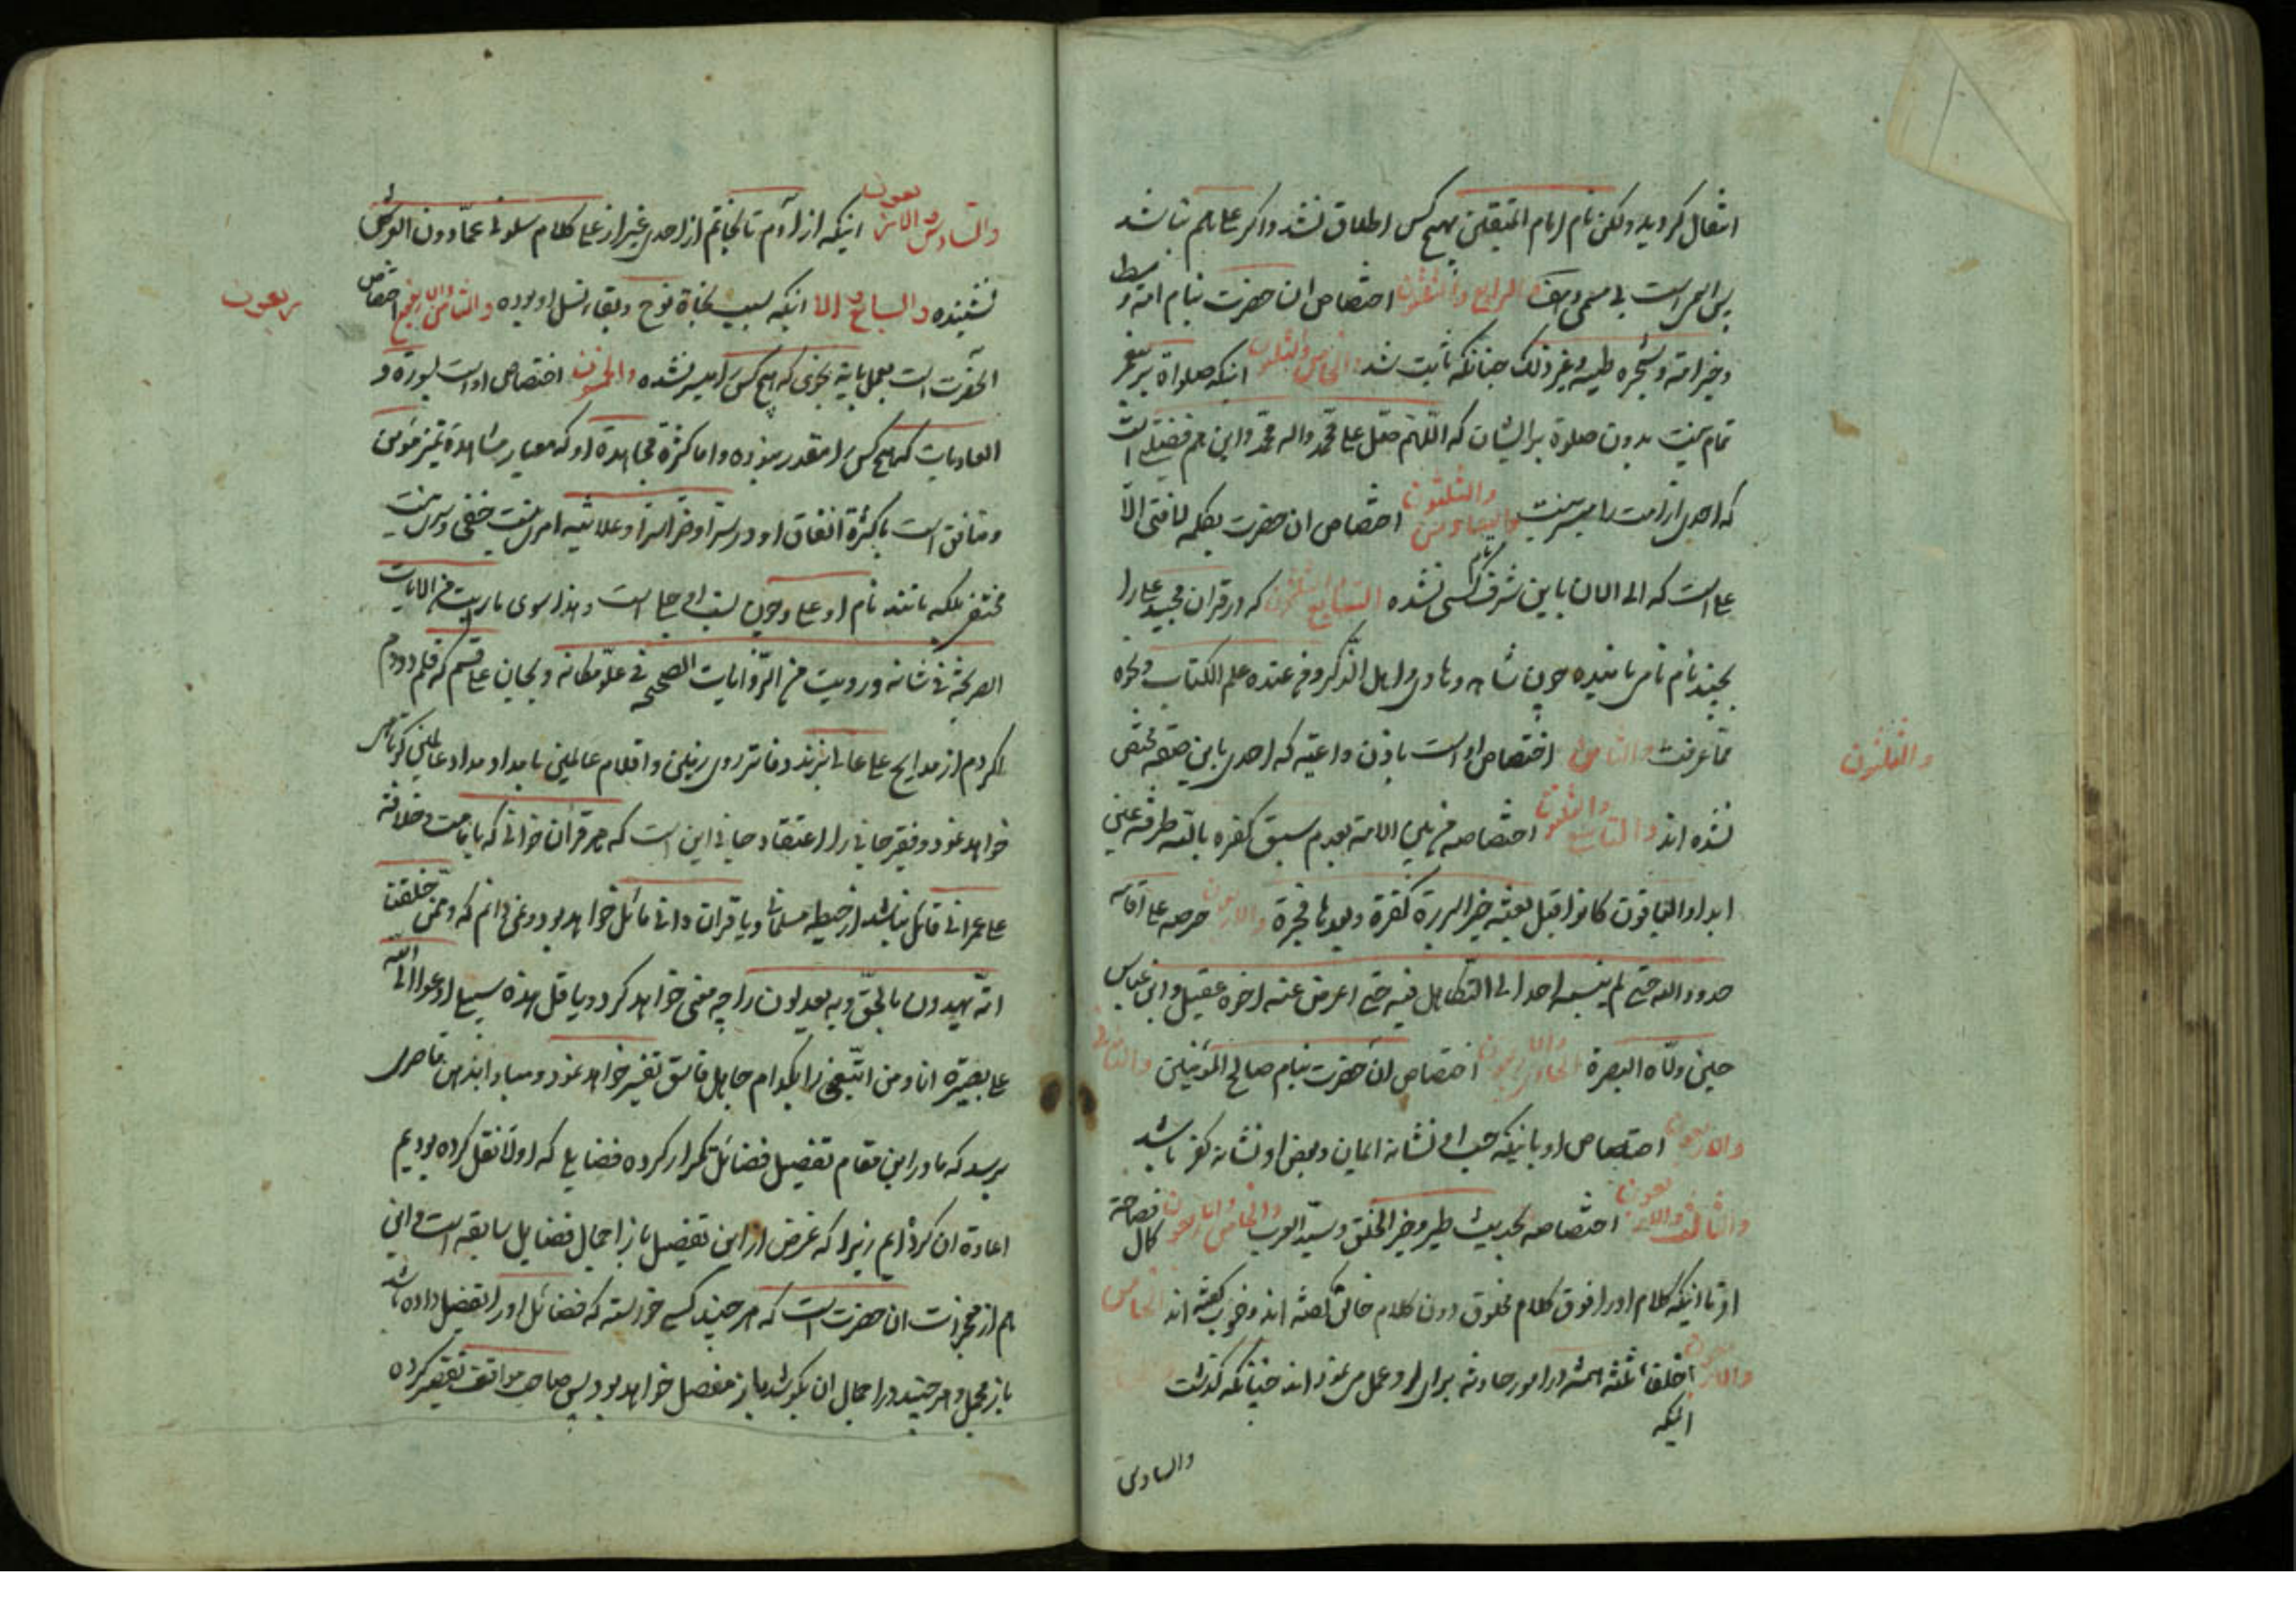 انتقال کردید ولکن نام امام المتقین بهیچ کس اطلاق نشد واکر علی هم نباشد
پس امر است بی مسمی وصف الرابع والثلثون اختصاص ان حضرت بنام امة وسط
وخیر امة وشجره طیبه وغیر ذلک چنانکه ثابت شد والخامس والثلثون اینکه صلواة بر پیغمبر
تمام نیست بدون صلوة بر ایشان که اللهم صل علی محمد واله محمد واین هم فضیلتی است
که احدی از امت را میسر نیست والسادس والثلثون اختصاص ان حضرت بکلمه لا فتی الا
علی است که الی الان باین شرف کسی نشده السابع والثلثون که در قران مجید علی را
بچند نام نامی نامیده چون شاهد وهادی واهل الذکر ومن عنده علم الکتاب ونحوه
مما عرفت والثامن اختصاص او است باذن واعیه که احدی باین صفة مختص
والثلثون
نشده اند والتاسع والثلثون اختصاصه من بین الامة بعدم سبق کفره بالله طرفة عین
ابدا والباقون کانوا قبل بعثة خیر البررة کفرة وبعدها فجرة والاربعون حرصه علی اقامة
حدود الله حتی لم ینسبه احد الی التکاهل فیه حتی اعرض عنه اخوه عقیل وابن عباس
حین ولاه البصرة الحادی والاربعون اختصاص ان حضرت بنام صالح المؤمنین والثانی
والاربعون اختصاص او باینکه حب او نشانه ایمان وبغض او نشانه کفر باشد
والثالث والاربعون اختصاصه بحدیث طیر وخیر الخلق وسید العرب والخامس والاربعون فصاحة کمال
او تا اینکه کلام او را فوق کلام مخلوق دون کلام خالق گفته اند وخوب گفته اند الخامس
والاربعون اینکه خلفا ثلثه همیشه در امور حادثه برای او عمل می نمود اند چنانکه گذشت
والسادس
والسادس والاربعون اینکه از آدم تا بخاتم از احدی غیر از علی کلام سلونی عما دون العرش
نشنیده والسابع الا اینکه سبب نجاة نوح وبقاء نسل او بوده والثامن والاربعون اختصاص
ربعون
انحضرت است بعمل بایة نجوی که هیچ کس را میسر نشده والخمسون اختصاص او است بسورة و
العادیات که هیچ کس را مقدور نبوده واما کثرة مجاهدة او که معیار مشاهدة تمیز مؤمن
ومنافق است با کثرة انفاق او در سرا وضرا سرا وعلانیه امری نیست خفی وسری نیست
مختفی بلکه مانند نام او علی وچون نسب او جلی است وهذا سوی ما رایت من الایات
الصریحة فی شانه ورویت من الروایات الصحیحه فی علو مکانه وبجان علی قسم که قلم دو دم
اکر دم از مدایح علی عالی نزند دفاتر روی زمین واقلام عالمین با مداد مداد عالمین کوتاهی
خواهد نمود وفقیر جانی را اعتقاد جانی این است که هر قران خوانی که بامامت وخلافة
علی عمرانی قائل نباشد از حیطه مسلمانی ویا قران دانی مائل خواهد بود ونمی دانم که وممن خلقنا
امة یهدون بالحق وبه یعدلون را چه معنی خواهد کرد ویا قل هذه سبیلی ادعوا الی الله
علی بصیرة انا ومن اتبعنی را بکدام جاهل فاسق تفسیر خواهد نمود ومبادا بذهن قاصری
برسد که ما در این مقام تفصیل فضائل تکرار کرده فضایلی که اولا نقل کرده بودیم
اعادة ان کرده ایم زیرا که غرض از این تفصیل باز اجمال فضایل سابقه است واین
هم از معجزات ان حضرت است که هر چند کسی خواسته که فضائل او را تفصیل داده باشد
باز مجمل وهر چند در اجمال ان بکوشد باز مفصل خواهد بود پس صاحب مواقف تقصیر کرده